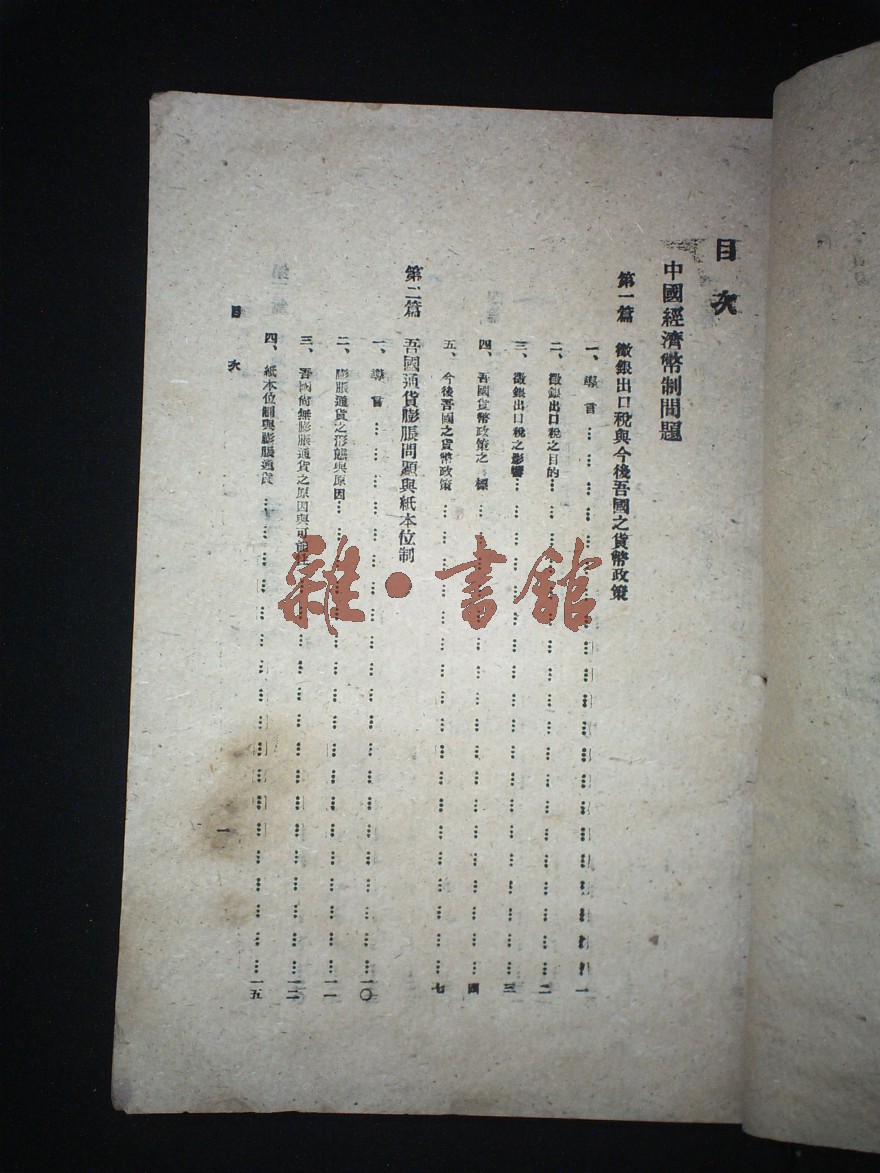 目次
中國經濟幣制問題
第一篇 徵銀出口稅與今後吾國之貨幣政策
一、導言………………一
二、徵銀出口稅之目的………………二
三、徵銀出口稅之影響………………三
四、吾國貨幣政策之 標………………四
五、今後吾國之貨幣政策………………七
第二篇 吾國通貨膨脹問題與紙本位制
一、導言………………一〇
二、膨脹通貨之形態與原因………………一一
三、吾國尚無膨脹通貨之原因與可能性………………一二
四、紙本位制與膨脹通貨………………一五
目次
一
雜·書館